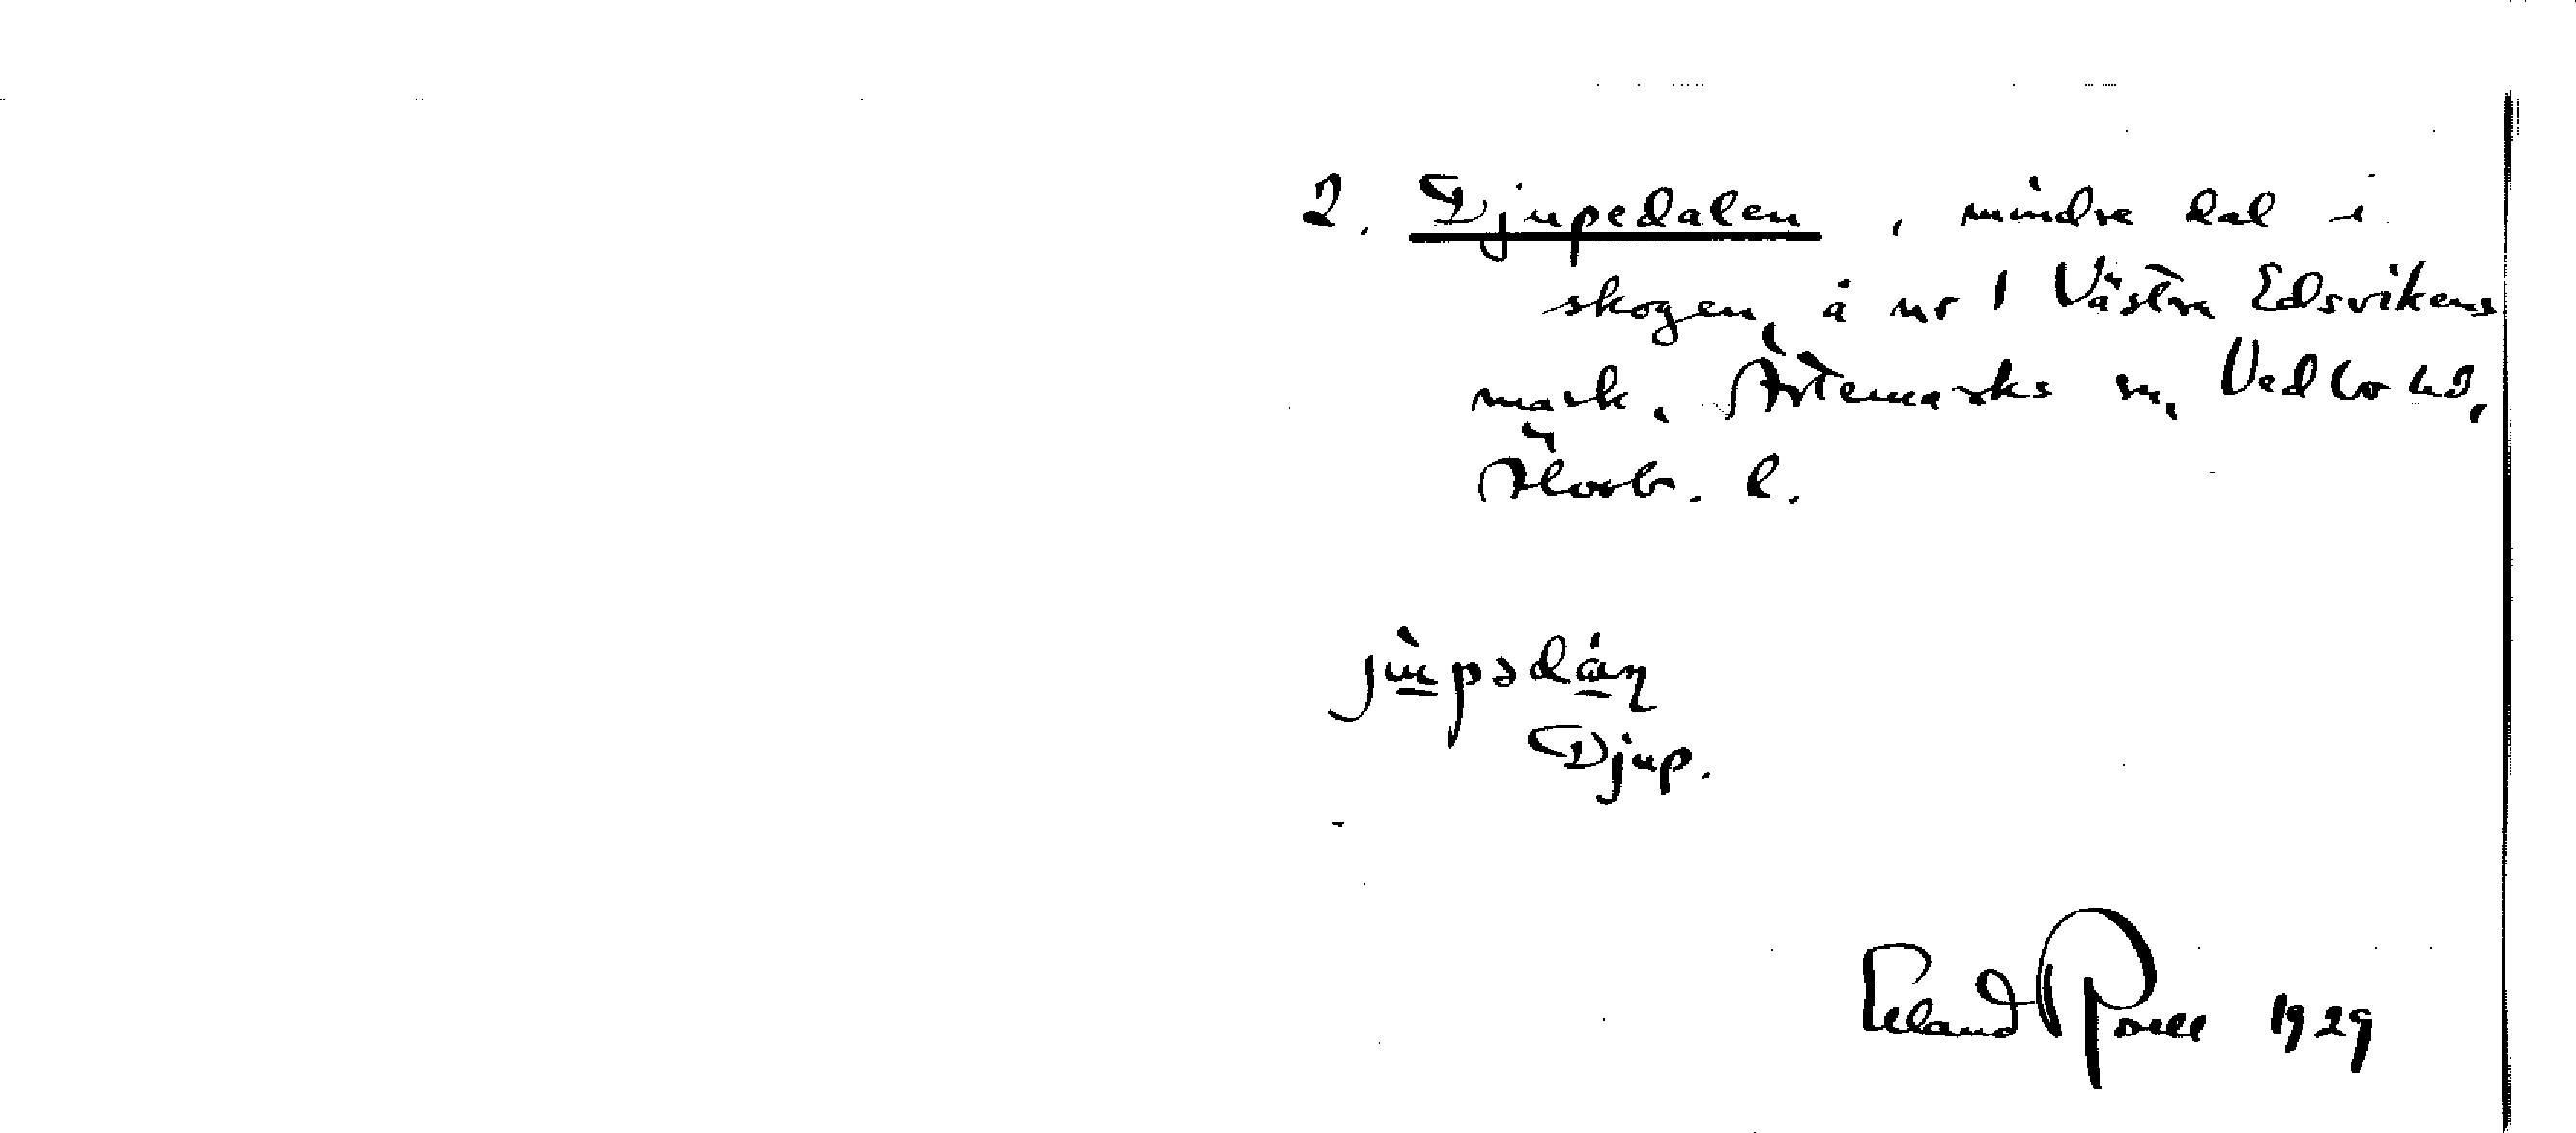 2. Djupedalen, mindre dal i
skogen, å nr 1 Västra Edsvikens
mark, Ärtemarks sn, Vedbo hd,
Älvsb. l.
jùpədáɳ
Djup.
Erland Rosell 1929